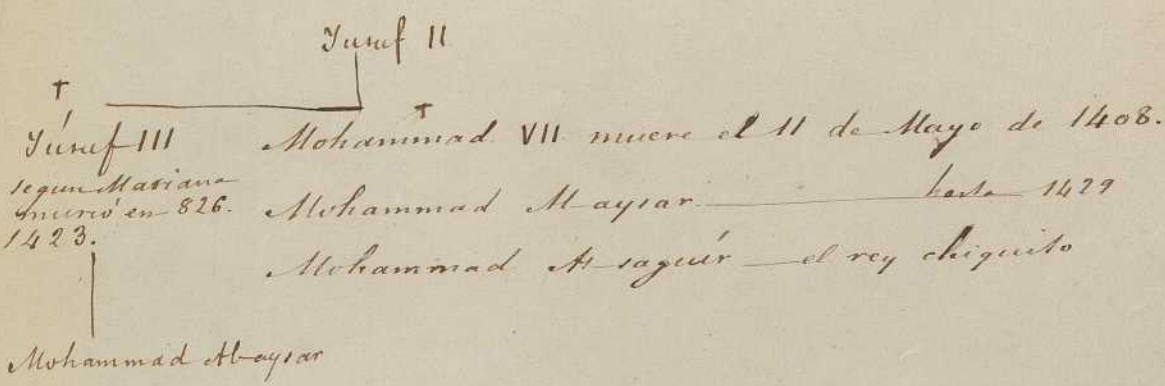 Yusuf II
Yúsuf III
segun Mariana
murió en 826.
1423.
Mohammad VII muere el 11 de Mayo de 1408.
Mohammad Al-aysar hasta 1429
Mohammad As-saguír el rey chiquito
Mohammad Al-aysar